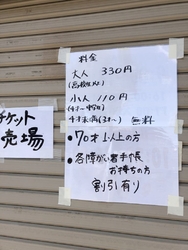 料金
大人 330円
(高校生以上)
小人 110円
(4才~中学生)
4才未満(3才~) 無料
•70才以上の方
•各障がい者手帳
お持ちの方
割引有り
チケット
売場